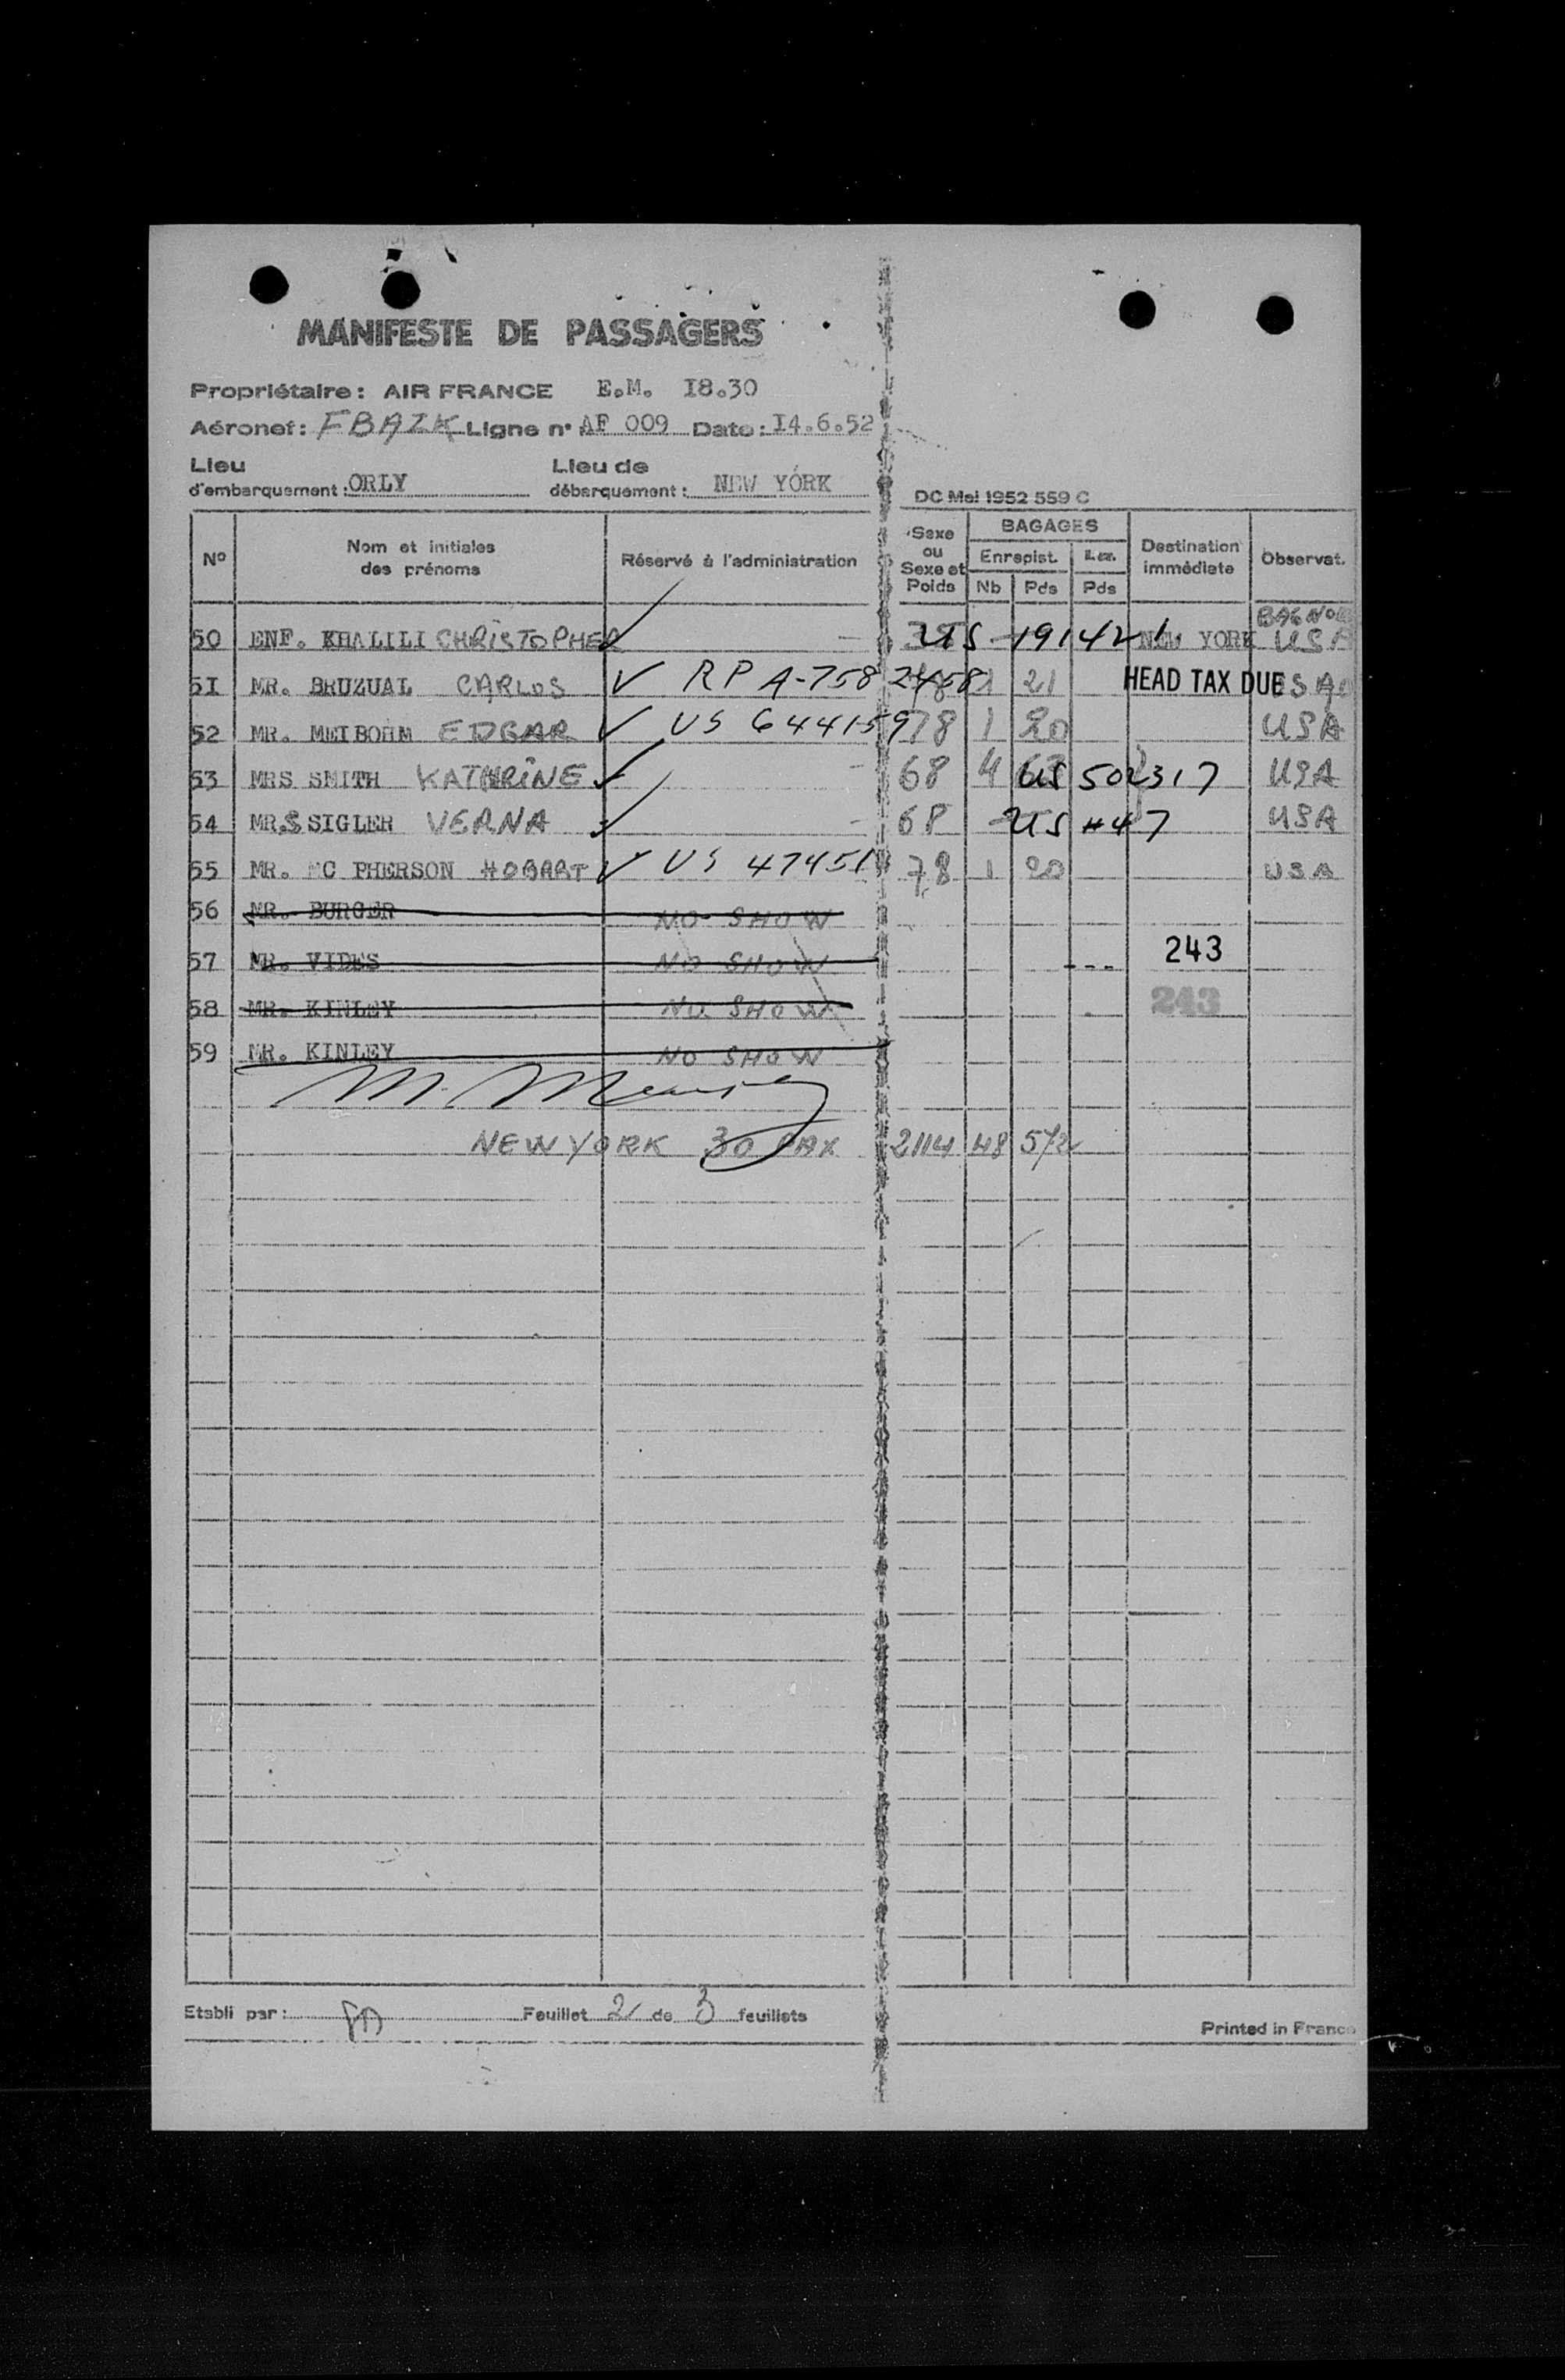 MANIFESTE DE PASSAGERS
Propriétaire: AIR FRANCE E.M. I8.30
Aéronef: FBAZK Ligne n° AF 009 Date: I4.6.52
Lieu d'embarquement: ORLY Lieu de débarquement: NEW YORK
DC Mai 1952 559 C
N° Nom et initiales des prénoms Réservé à l'administration Sexe ou Sexe et Poids BAGAGES Enregist. Nb Pds Pds Destination immédiate Observat.
50 ENF. KHALILI CHRISTOPHER US 191421 NEW YORK USA
5I MR. BRUZUAL CARLOS V RP A-7582458 1 21 HEAD TAX DUE
52 MR. MEIBOHM EDGAR V US 644159 78 1 20 USA
53 MRS SMITH KATHRINE 68 4 US 502317 USA
54 MRS SIGLER VERNA 68 US #47 USA
55 MR. MC PHERSON HOBART V US 47451 78 1 20 USA
56 MR. BURGER NO SHOW
57 MR. VIDES NO SHOW 243
58 MR. KINLEY NO SHOW 243
59 MR. KINLEY NO SHOW
NEW YORK 30 PAX 2114 48 572
Etabli par: Feuillet 2 de 3 feuillets
Printed in France